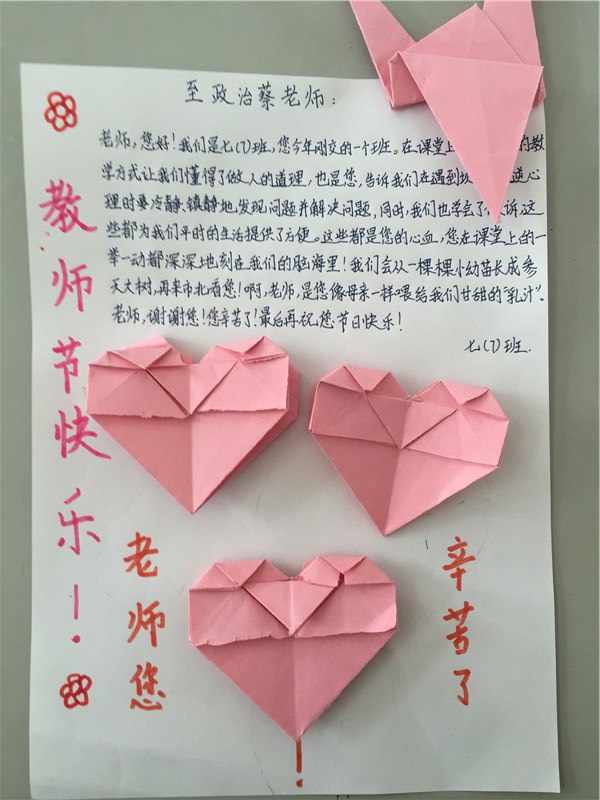 至政治蔡老师：
老师，您好！我们是七（7）班，您今年刚交的一个班。在课堂上 的教
学方式让我们懂得了做人的道理，也是您，告诉我们在遇到 逆心
理时要冷静、镇静地发现问题并解决问题，同时，我们也学会了 诉，这
些都为我们平时的生活提供了方便。这些都是您的心血，您在课堂上的一
举一动都深深地刻在我们的脑海里！我们会从一棵棵小幼苗长成参
天大树，再来市北看您！啊，老师，是您像母亲一样喂给我们甘甜的“乳汁”。
老师，谢谢您！您辛苦了！最后再祝您节日快乐！
七（7）班.
教师节快乐！
老师您
辛苦了
！